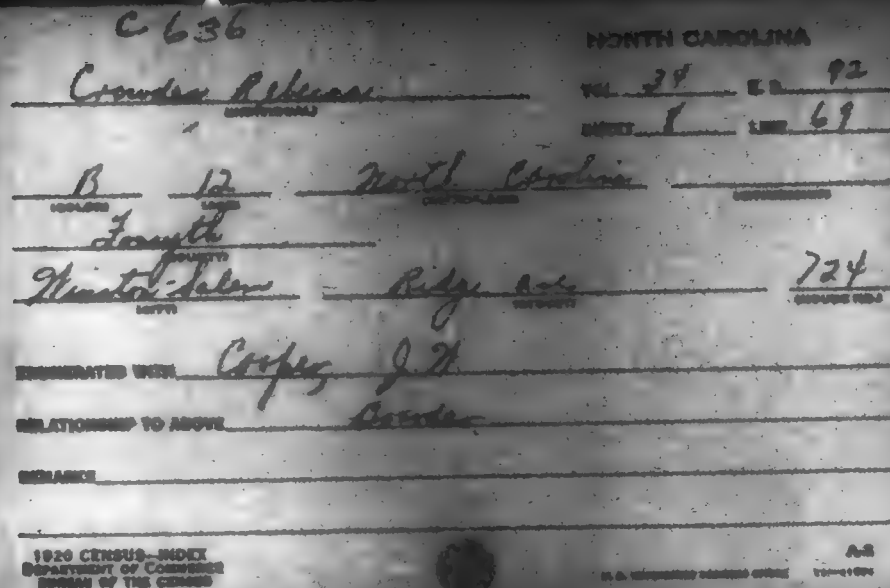 C 636
NORTH CAROLINA
Crowder Rebecca
(INDIVIDUAL)
VOL. 34 E. D. 92
SHEET 8 LINE 69
B 12 North Carolina
(COLOR) (AGE) (BIRTHPLACE) (CITIZENSHIP)
Forsyth
(COUNTY)
Winston-Salem Ridge Ave 724
(CITY) (STREET) (HOUSE NO.)
ENUMERATED WITH Cooper J. W
RELATIONSHIP TO ABOVE Boarder
REMARKS
1920 CENSUS—INDEX
DEPARTMENT OF COMMERCE
BUREAU OF THE CENSUS
A-2